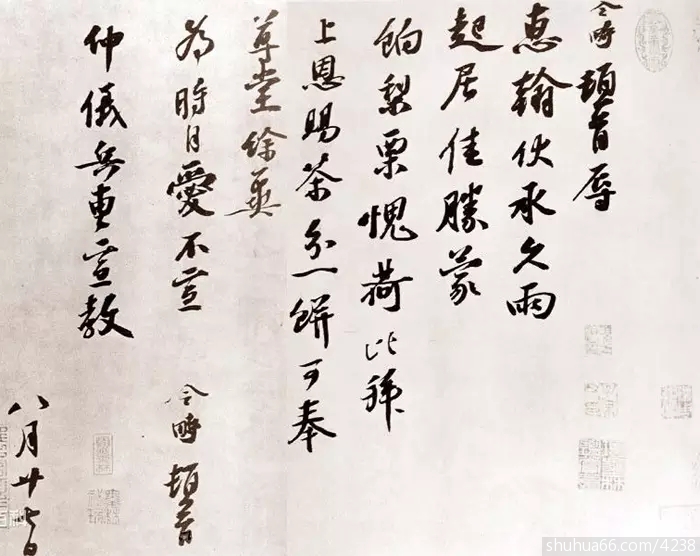 令畤頓首辱
惠翰伏承久雨
起居佳勝蒙
餉梨栗愧荷比拜
上恩賜茶分一餅可奉
尊堂餘冀
為時自愛不宣
令畤頓首
仲儀兵曹宣教
八月廿七日
shuhua66.com/4238